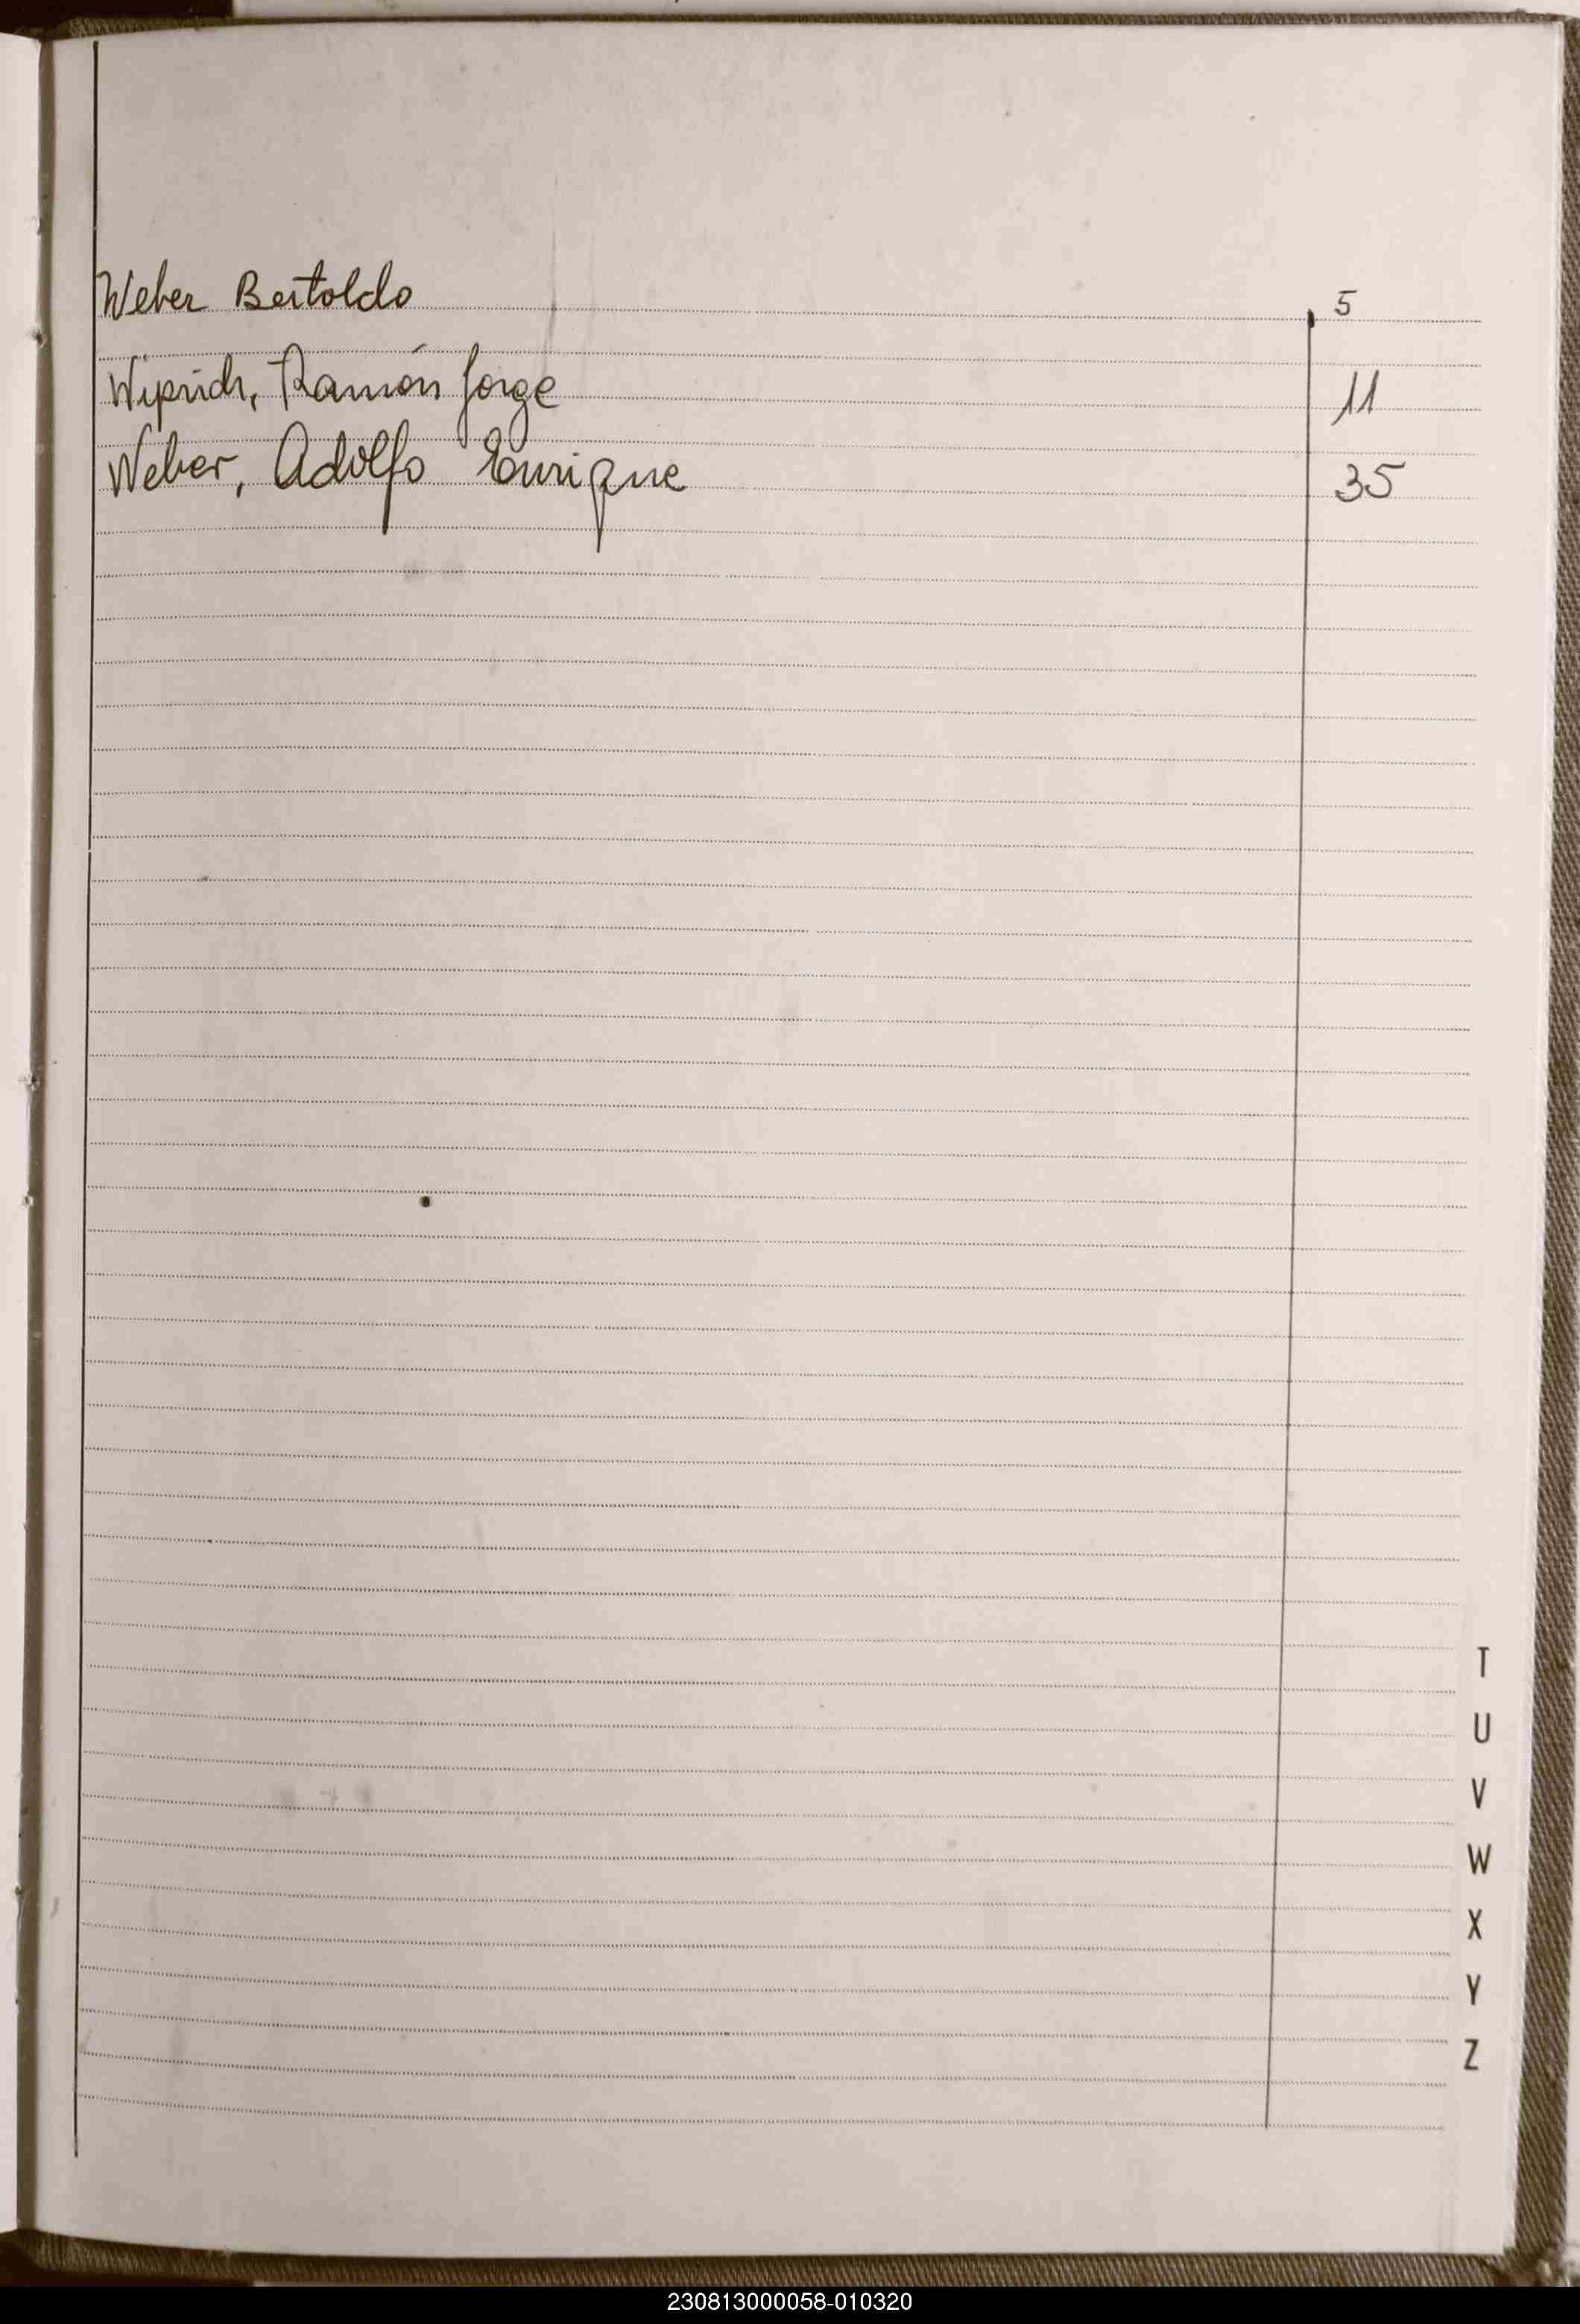 Weber Bertoldo 5
Wiprich, Ramón Jorge 11
Weber, Adolfo Enrique 35
T
U
V
W
X
Y
Z
230813000058-010320